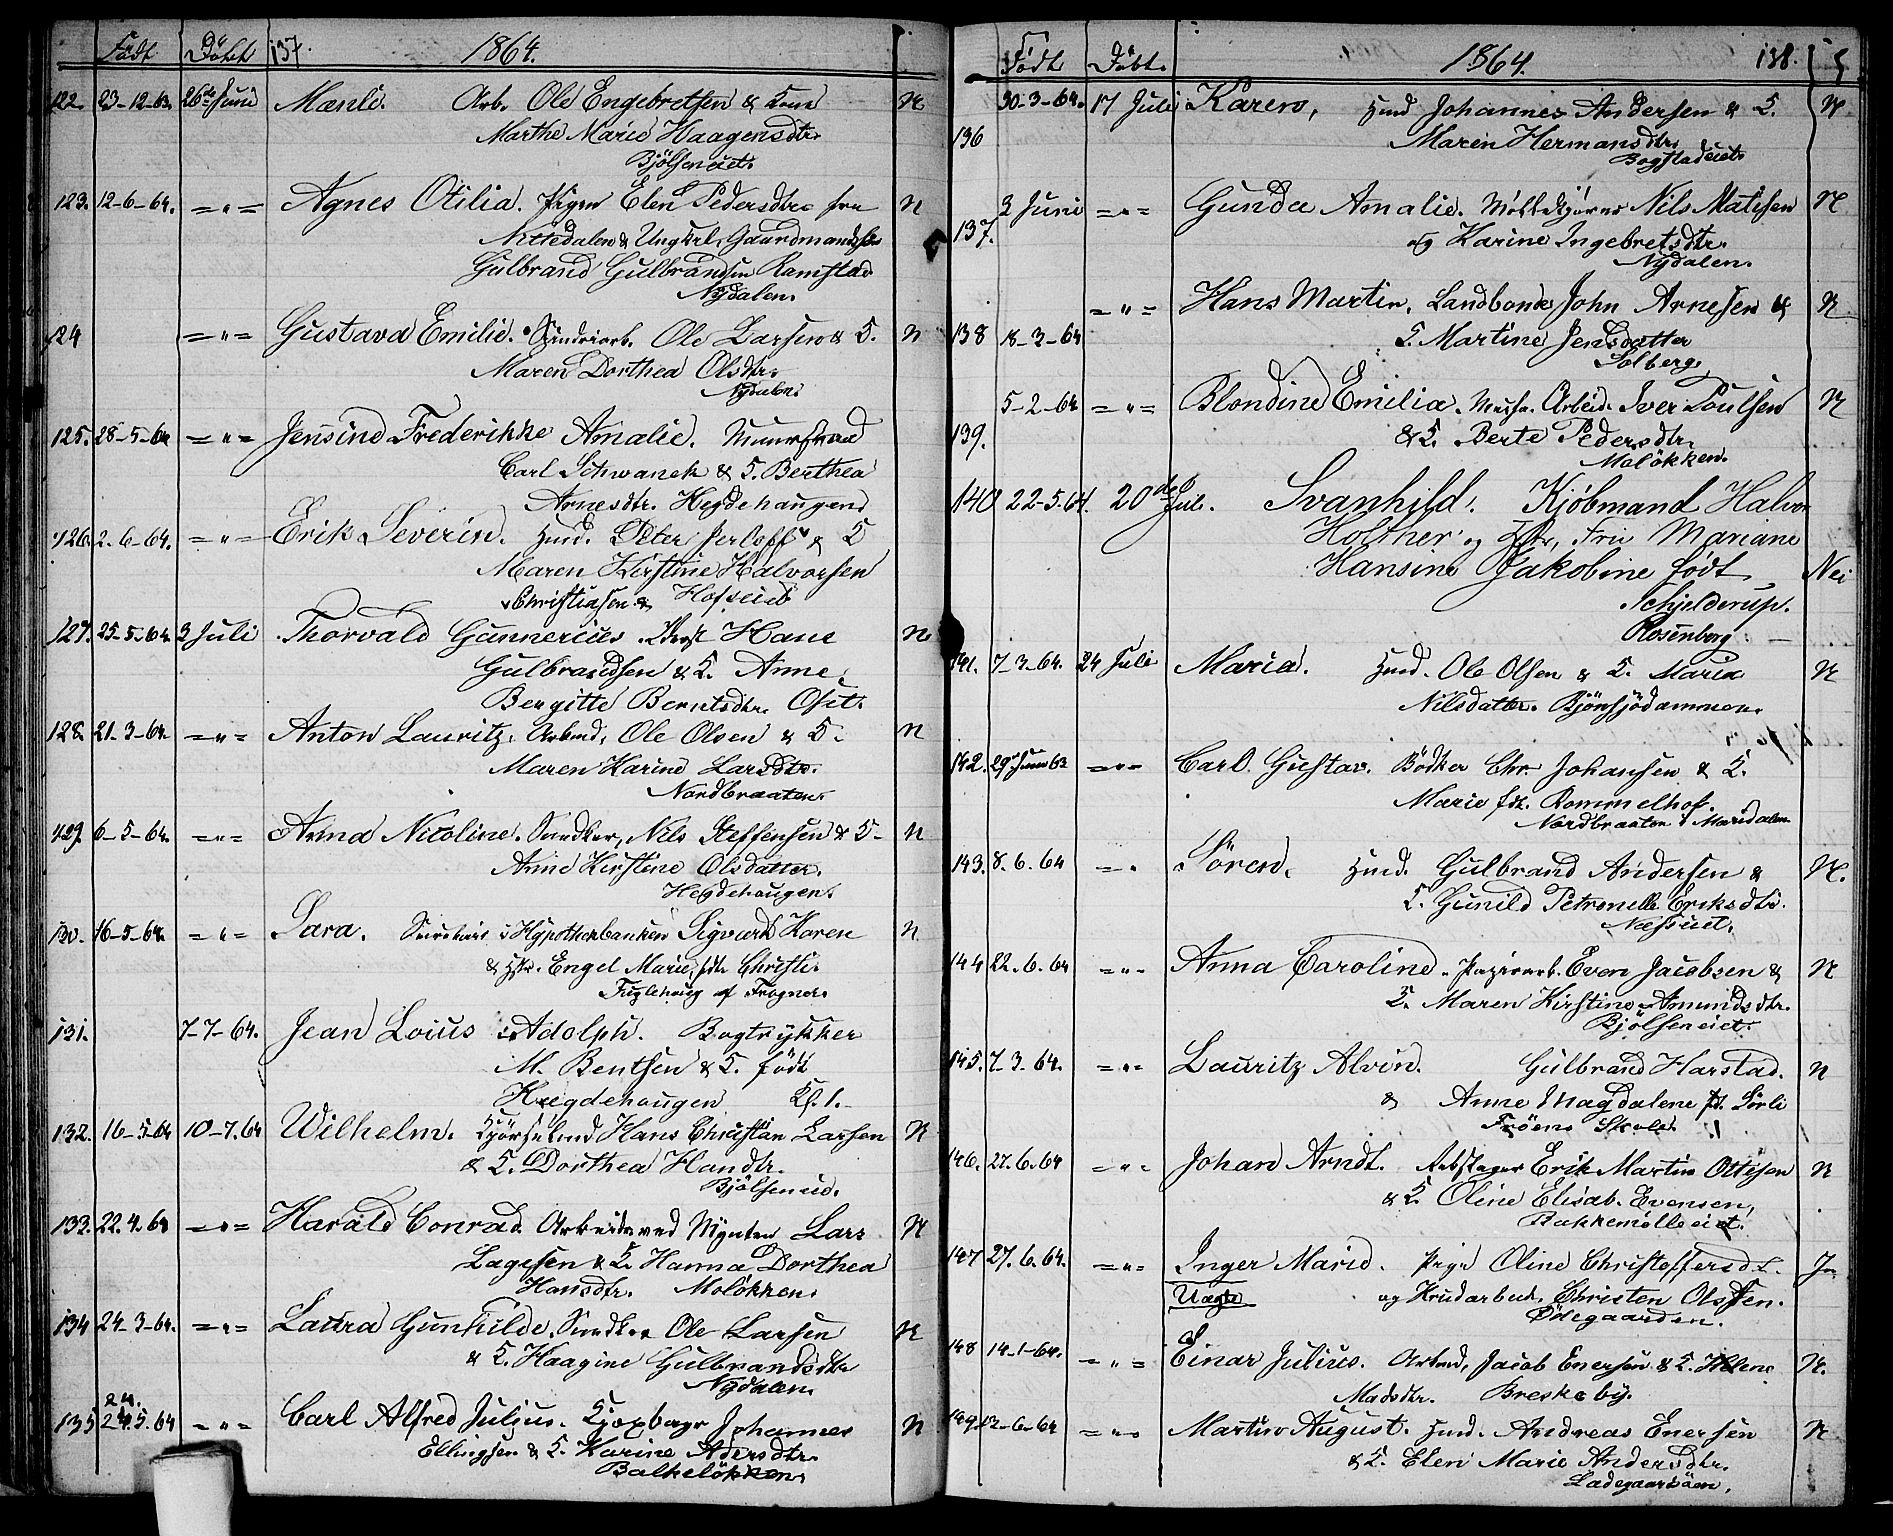 Født Döbt 137. 1864.
122. 23-12-63. 26de Juni Mænli. Arb. Ole Engebretsen & Kone N
Marthe Marie Haagensdtr.
Bjölseneiet.
123. 12-6-64. =„= Agnes Otilia. Pigen Elen Pedersdtr. fra N
Nittedalen & Ungkrl. Gaardmands
Gulbrand Gulbrandsen Ramstad
Nydalen.
124 =„= Gustava Emilie. Ole Larsen & K. N
Maren Dorthea Olsdtr.
Nydalen
125. 28-5-64 =„= Jensine Frederikke Amalie. Muursvend
Carl Schwanek & K. Berthea
Arnesdtr. Hegdehaugen
126. 2-6-64. =„= Erik Severin. Hmd. Peter & K
Maren Kirstine Halvorsen
Christiansen
127. 25-5-64. 3 Juli Thorvald Gunnerius. Hans N
Gulbrandsen & K. Anne
Bergitte Berntsdtr. Oset.
128. 21-3-64. =„= Anton Lauritz. Arbmd. Ole Olsen & K. N
Maren Karine Larsdtr.
Nordbraaten.
129. 6-5-64. =„= Anna Nicoline. Snedker, Nils Steffensen & K. N
Anne Kirstine Olsdatter.
Hegdehaugen.
130. 16-5-64. =„= Sara. i Hypothekbanken Sigvard Koren N
& Hstr. Engel Marie, fdt. Christi-
Fuglehaug af Frogner.
131. 7-7-64. Jean Loius Adolph. Bogtrykker
M. Bentsen & K. födt
Hegdehaugen Kl. 1.
132. 16-5-64 10-7.64 Wilhelm. Hans Christian Larsen N
& K. Dorthea Handtr.
Bjölseneid.
133. 22.4.64 =„= Harald Conrad. Arbeider ved Mynten Lars N
Lagesen & K. Hanna Dorthea
Hansdtr. Moløkken.
134 24-3-64. =„= Laura Gunhilde. Snedker Ole Larsen N
& K. Haagine Gulbrandsdtr
Nydalen.
24.
135 24.5.64 =„= Carl Alfred Julius. Johannes N
Ellingsen & K. Karine Adersdtr.
Balkeløkken.
Født Döbt. 1864. 138.
30-3-64. 17 Juli Karen, Hmd Johannes Andersen & K. N.
136 Maren Hermansdtr.
Bogstadeiet
3 Juni =„= Gunda Amalie. Nils Matisen N
137. og Karine Ingebretsdtr.
Nydalen.
=„= Hans Martin. Landbonde John Arnesen & N
138 18-3-64 K. Martine Jensdatter
Solberg.
5-2-64 =„= Blondine Emilia. Arbeid. Iver Poulsen N
139. & K. Berte Pedersdtr.
Moløkken.
140 22-5.64. 20de Juli. Svanhild. Kjöbmand Halvor
Holtner og Hstr, Fru Mariane
Hansine Jakobine födt Nei
Schjelderup.
Rosenborg.
141. 7-3-64. 24 Juli Maria. Hmd. Ole Olsen & K. Maria N
Nilsdatter. Bjönsjödammen.
142. 29 Juni 63 =„= Carl Gustav. Bödker Chr. Johansen & K.
Marie fdt. Rommelhof.
Nordbraaten i Maridalen
143. 8.6.64 =„ Sören. Hmd. Gulbrand Andersen & N.
K. Gunild Petronelle Eriksdtr.
Næssiet.
144 22.6.64 =„= Anna Caroline. Papirarb. Even Jacobsen & N
K. Maren Kirstine Amundsdtr.
Bjölseneiet.
145. 7-3-64. =„= Lauritz Alvin. Gulbrand Harstad. N
& Anne Magdalene fdt. Sörli
Fröens Skole.
146. 22.6.64 =„= Johan Arndt. Erik Martin Ottesen N
& K. Oline Elisab. Evensen,
Bakkemölleeiet.
147 27.6.64. =„= Inger Marie. Pige Oline Christoffersdt. Ja
Uægte og Krudarbeid. Christen Olssen.
Ödegaarden.
148 14-1-64. =„= Einar Julius. Arbmd. Jacob Enersen & K. Helene N.
Madsdtr. Breskeby.
149. 12-6-64 =„= Martin August. Hmd. Andreas Enersen N
& K. Elen Marie Andersdtr.
Ladegaardsöen.